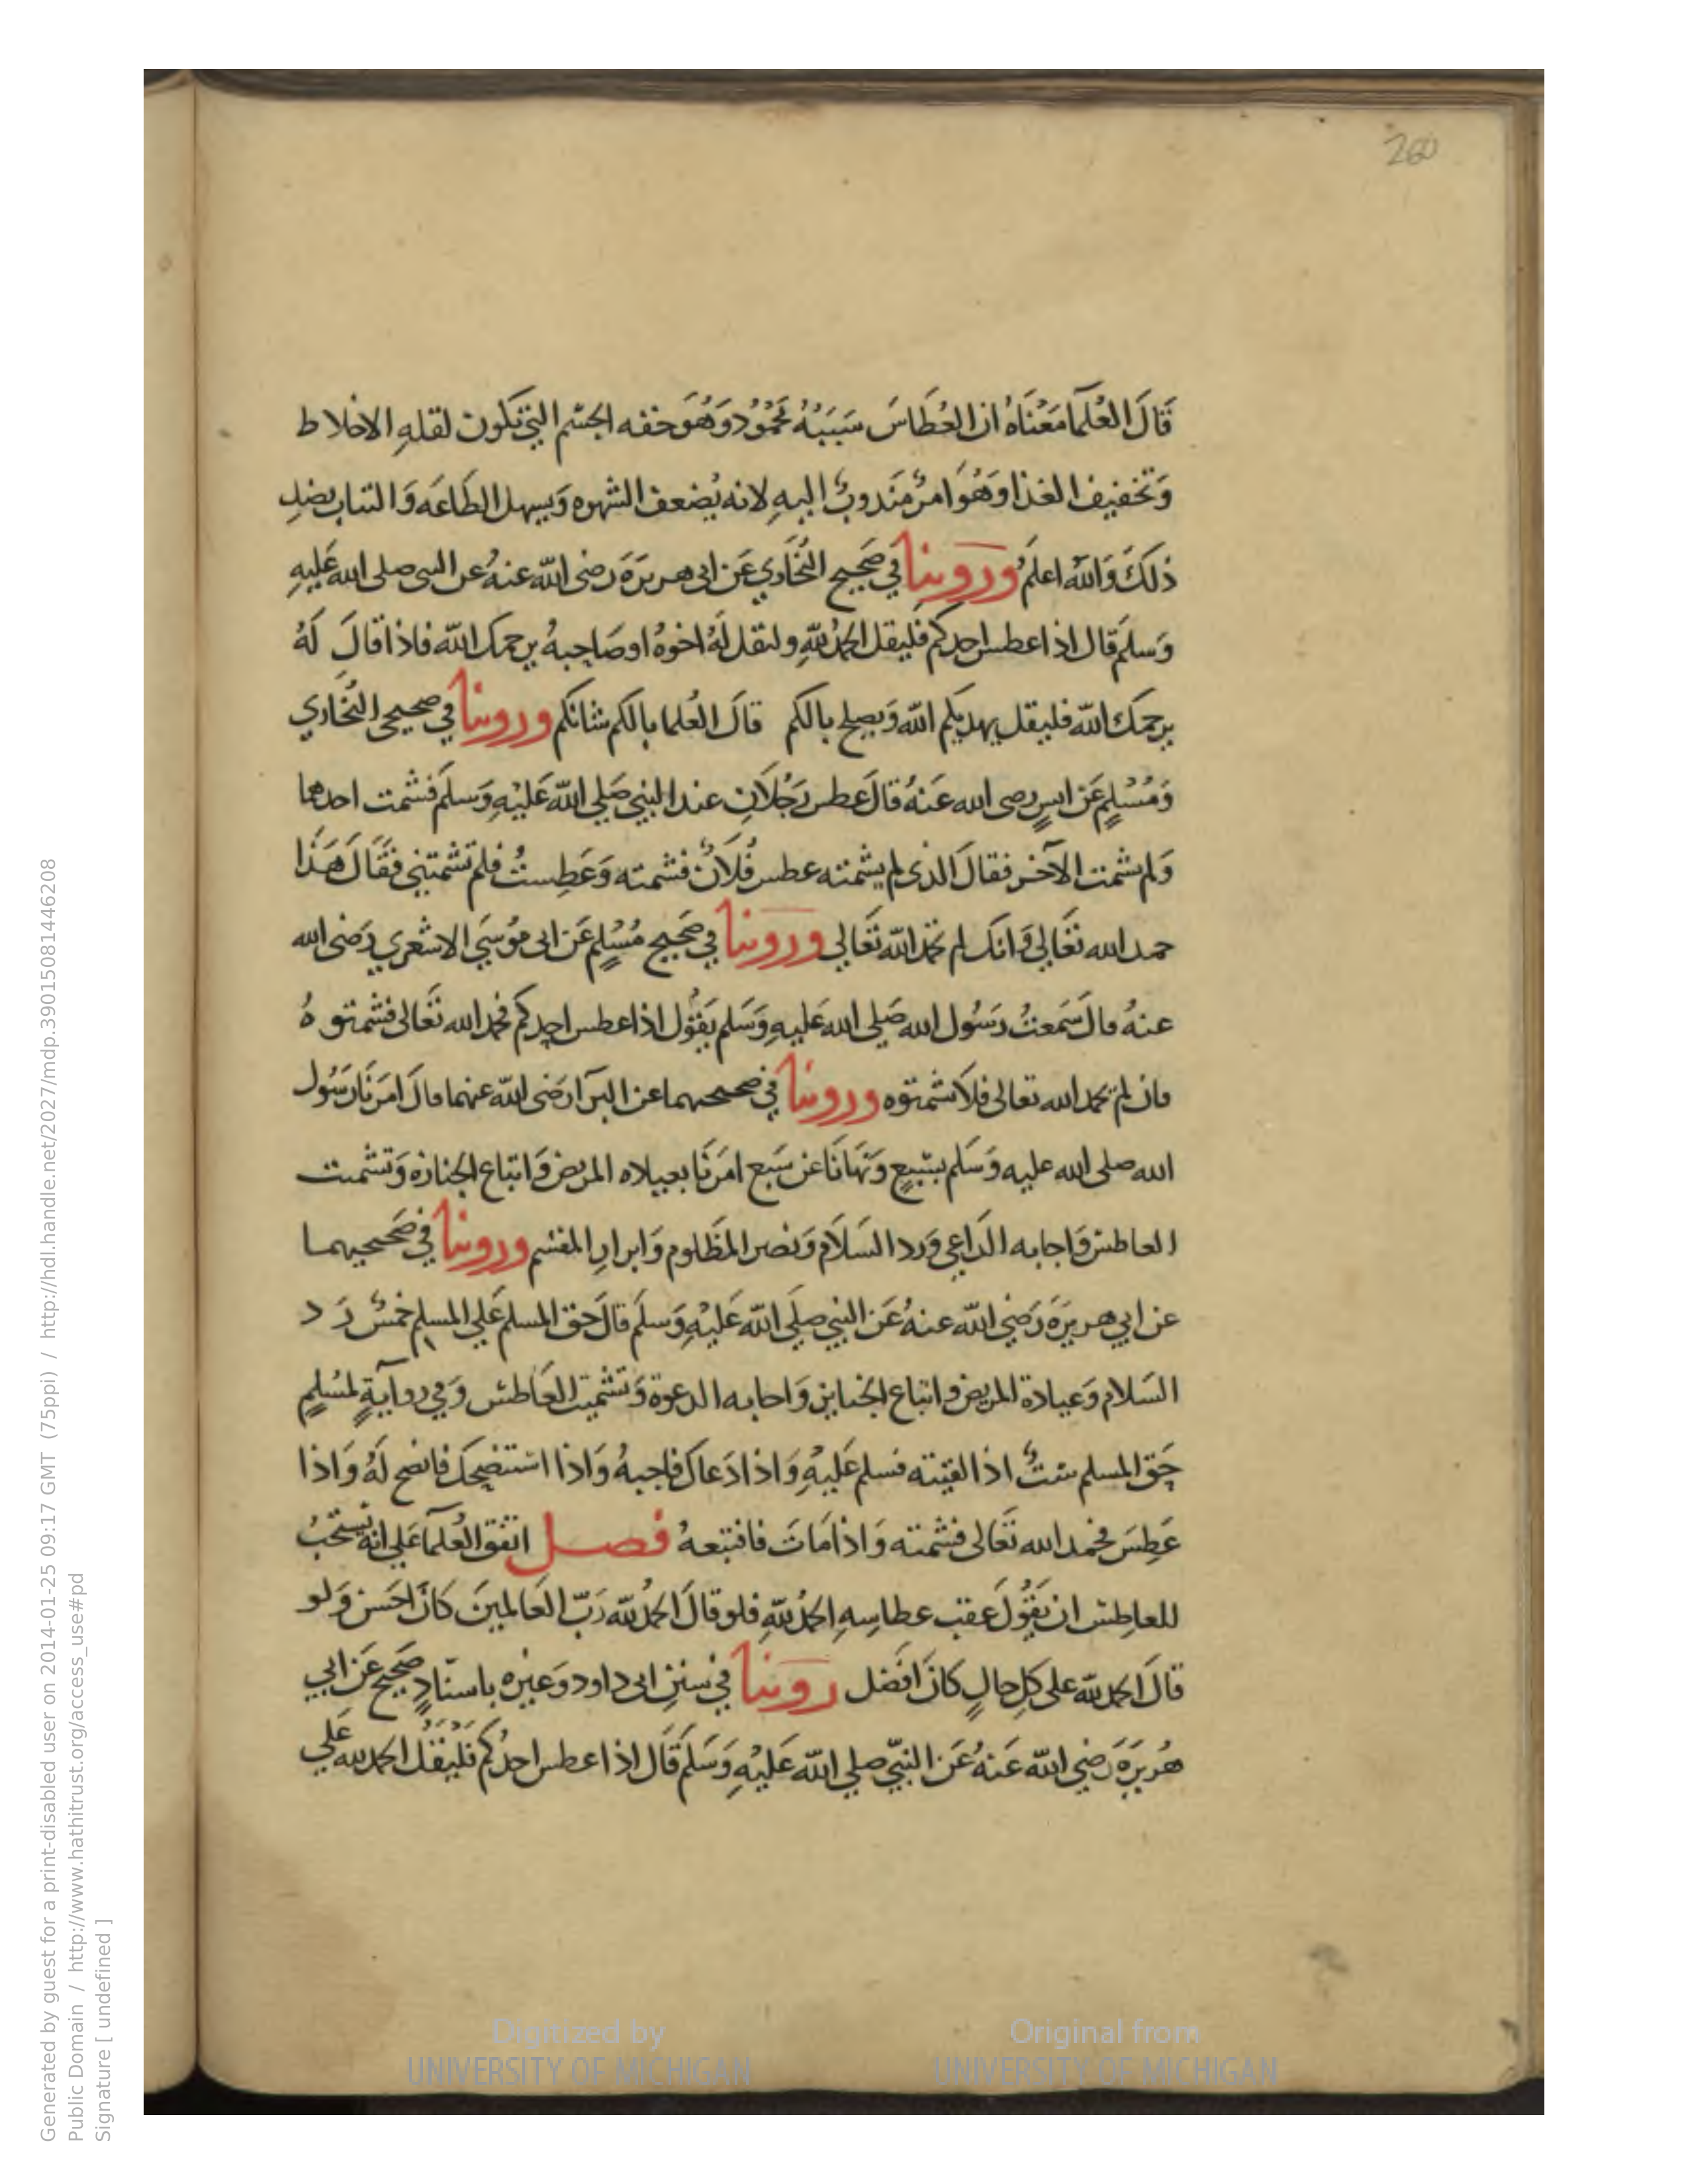 260
قَالَ العُلَمآ مَعْنَاهُ ان العُطَاسَ سَبَبُهُ مَحْمُوُدٌ وَهُوَ خفه الجسْم التي تكون لقلهِ الاخلاط
وَتخفيف الغذا وَهُوَ امرٌ مَندوبٌ اليهِ لانه يُضعف الشهوه وَيسهل الطَاعَه وَالتثاب بضدِ
ذلكَ وَاللّه اعلمُ وروينا في صَحيح البُخَاري عَن ابى هريرَةَ رضى اللّه عنهُ عن النبى صلى الله عَليهِ
وَسلَم قال اذا عطس احدكم فليقل الحمدُ للّهِ وليقل لَهُ اخوهُ او صَاحبهُ يرحمك اللّه فاذا قالَ لَهُ
يرحمك اللّه فليقل يهديكم اللّه وَيصلح بالكم قالَ العُلما بالكم شانكم وروينا في صحيح البُخاري
وَمُسْلمٍ عَن انسٍ رضى الله عَنهُ قالَ عطس رَجُلاَنِ عند النبي صَلي اللّه عَليْهِ وَسلَم فشمت احدهما
وَلم يشمت الآخر فقالَ الذى لم يشمته عطس فُلاَنٌ فشمته وَعَطِستُ فلم تشمتني فقَالَ هَذا
حمد الله تعَالي وَانك لم تحمد اللّه تعَالى وروينا في صَحيح مُسْلمٍ عَن ابى مُوسَي الاشعري رَضى الله
عنهُ قالَ سَمعتُ رَسُول الله صَلى الله عَليهِ وَسَلم يَقُول اذا عطس احدكم فحمد الله تعَالى فشمتوهُ
فان لم يحمد الله تعالى فلاَ تشمتوه وروينا في صحيحيهما عن البرآ رَضى اللّه عنهما قالَ امَرنَا رَسُول
الله صلى الله عليه وَسَلم بسَبعٍ وَنهَانَا عن سَبع امَرنَا بعيلاه المريض وَاتباع الجنازه وَتشميت
العاطش وَاجابه الدَاعى وَرد السَلاَم وَنصر المَظَلوم وَابرارِ المقسَم وروينا في صَحيحيهما
عن ابي هريرَةَ رَضي اللّه عنهُ عَن النبي صلَى اللّه عَليْهِ وَسلَم قالَ حَق المسلم عَلي المسلم خمسٌ رَد
السَلام وَعيادة المريض واتباع الجنايز وَاجابه الدعوة وَتشميت العَاطش وَفي روايةٍ لمسُلمٍ
حَق المسلم ستٌ اذا لقيته فسلم عَليهِ وَاذا دَعاك فاجبهُ وَاذا استنصحك فانصح لَهُ وَاذا
عَطِسَ فحمد الله تعَالى فشمته وَاذا مَاتَ فاتبعهُ فصل اتفق العُلمآ عَلي انه يستحَبُ
للعاطِش ان يَقُولَ عَقب عطاسِهِ الحمدُ للّهِ فلو قالَ الحمدُ للّه رَبّ العَالمينَ كانَ احَسن وَلو
قالَ الحمد للّه على كلِ حالٍ كانَ افضَل روينا في سننِ ابى داود وَغيره باسنَادٍ صَحيح عَن ابي
هُريرَةَ رَضي اللّه عَنهُ عَن النبيّ صلي اللّه عَليْهِ وَسَلَم قَال اذا عطس احدُكم فَليَقُل الحمد لله عَلي
Generated by guest for a print-disabled user on 2014-01-25 09:17 GMT (75ppi) / http://hdl.handle.net/2027/mdp.39015081446208
Public Domain / http://www.hathitrust.org/access_use#pd
Signature [ undefined ]
Digitized by
UNIVERSITY OF MICHIGAN
Original from
UNIVERSITY OF MICHIGAN